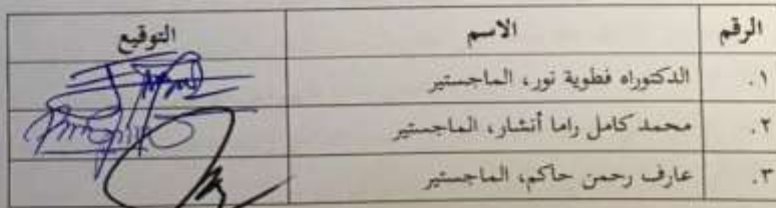 الرقم الاسم التوقيع
١. الدكتوراه فطوية نور، الماجستير
٢. محمد كامل راما أنشار، الماجستير
٣. عارف رحمن حاكم، الماجستير